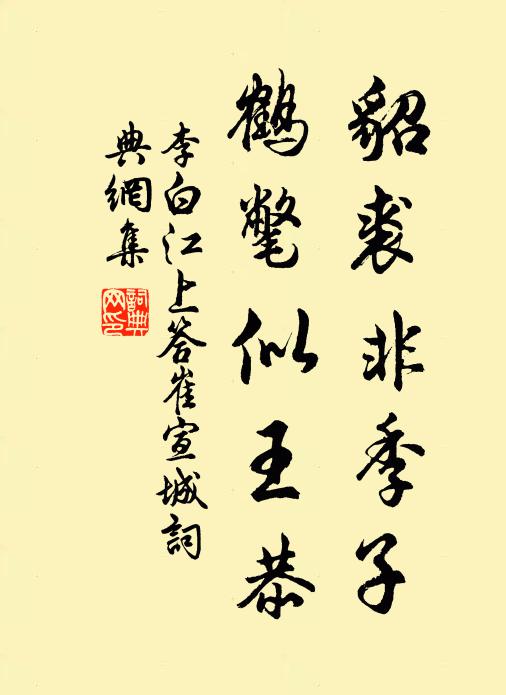 貂裘非季子
鶴氅似王恭
李白江上答崔宣城詞
典網集
詞典網印